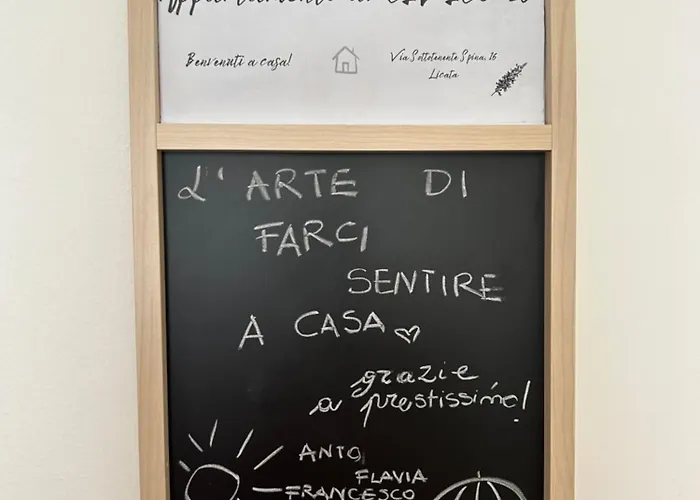 Benvenuti a casa!
Via Sottotenente Spina, 16
Licata
L' ARTE DI
FARCI
SENTIRE
A CASA
grazie
a prestissimo!
ANTO
FLAVIA
FRANCESCO